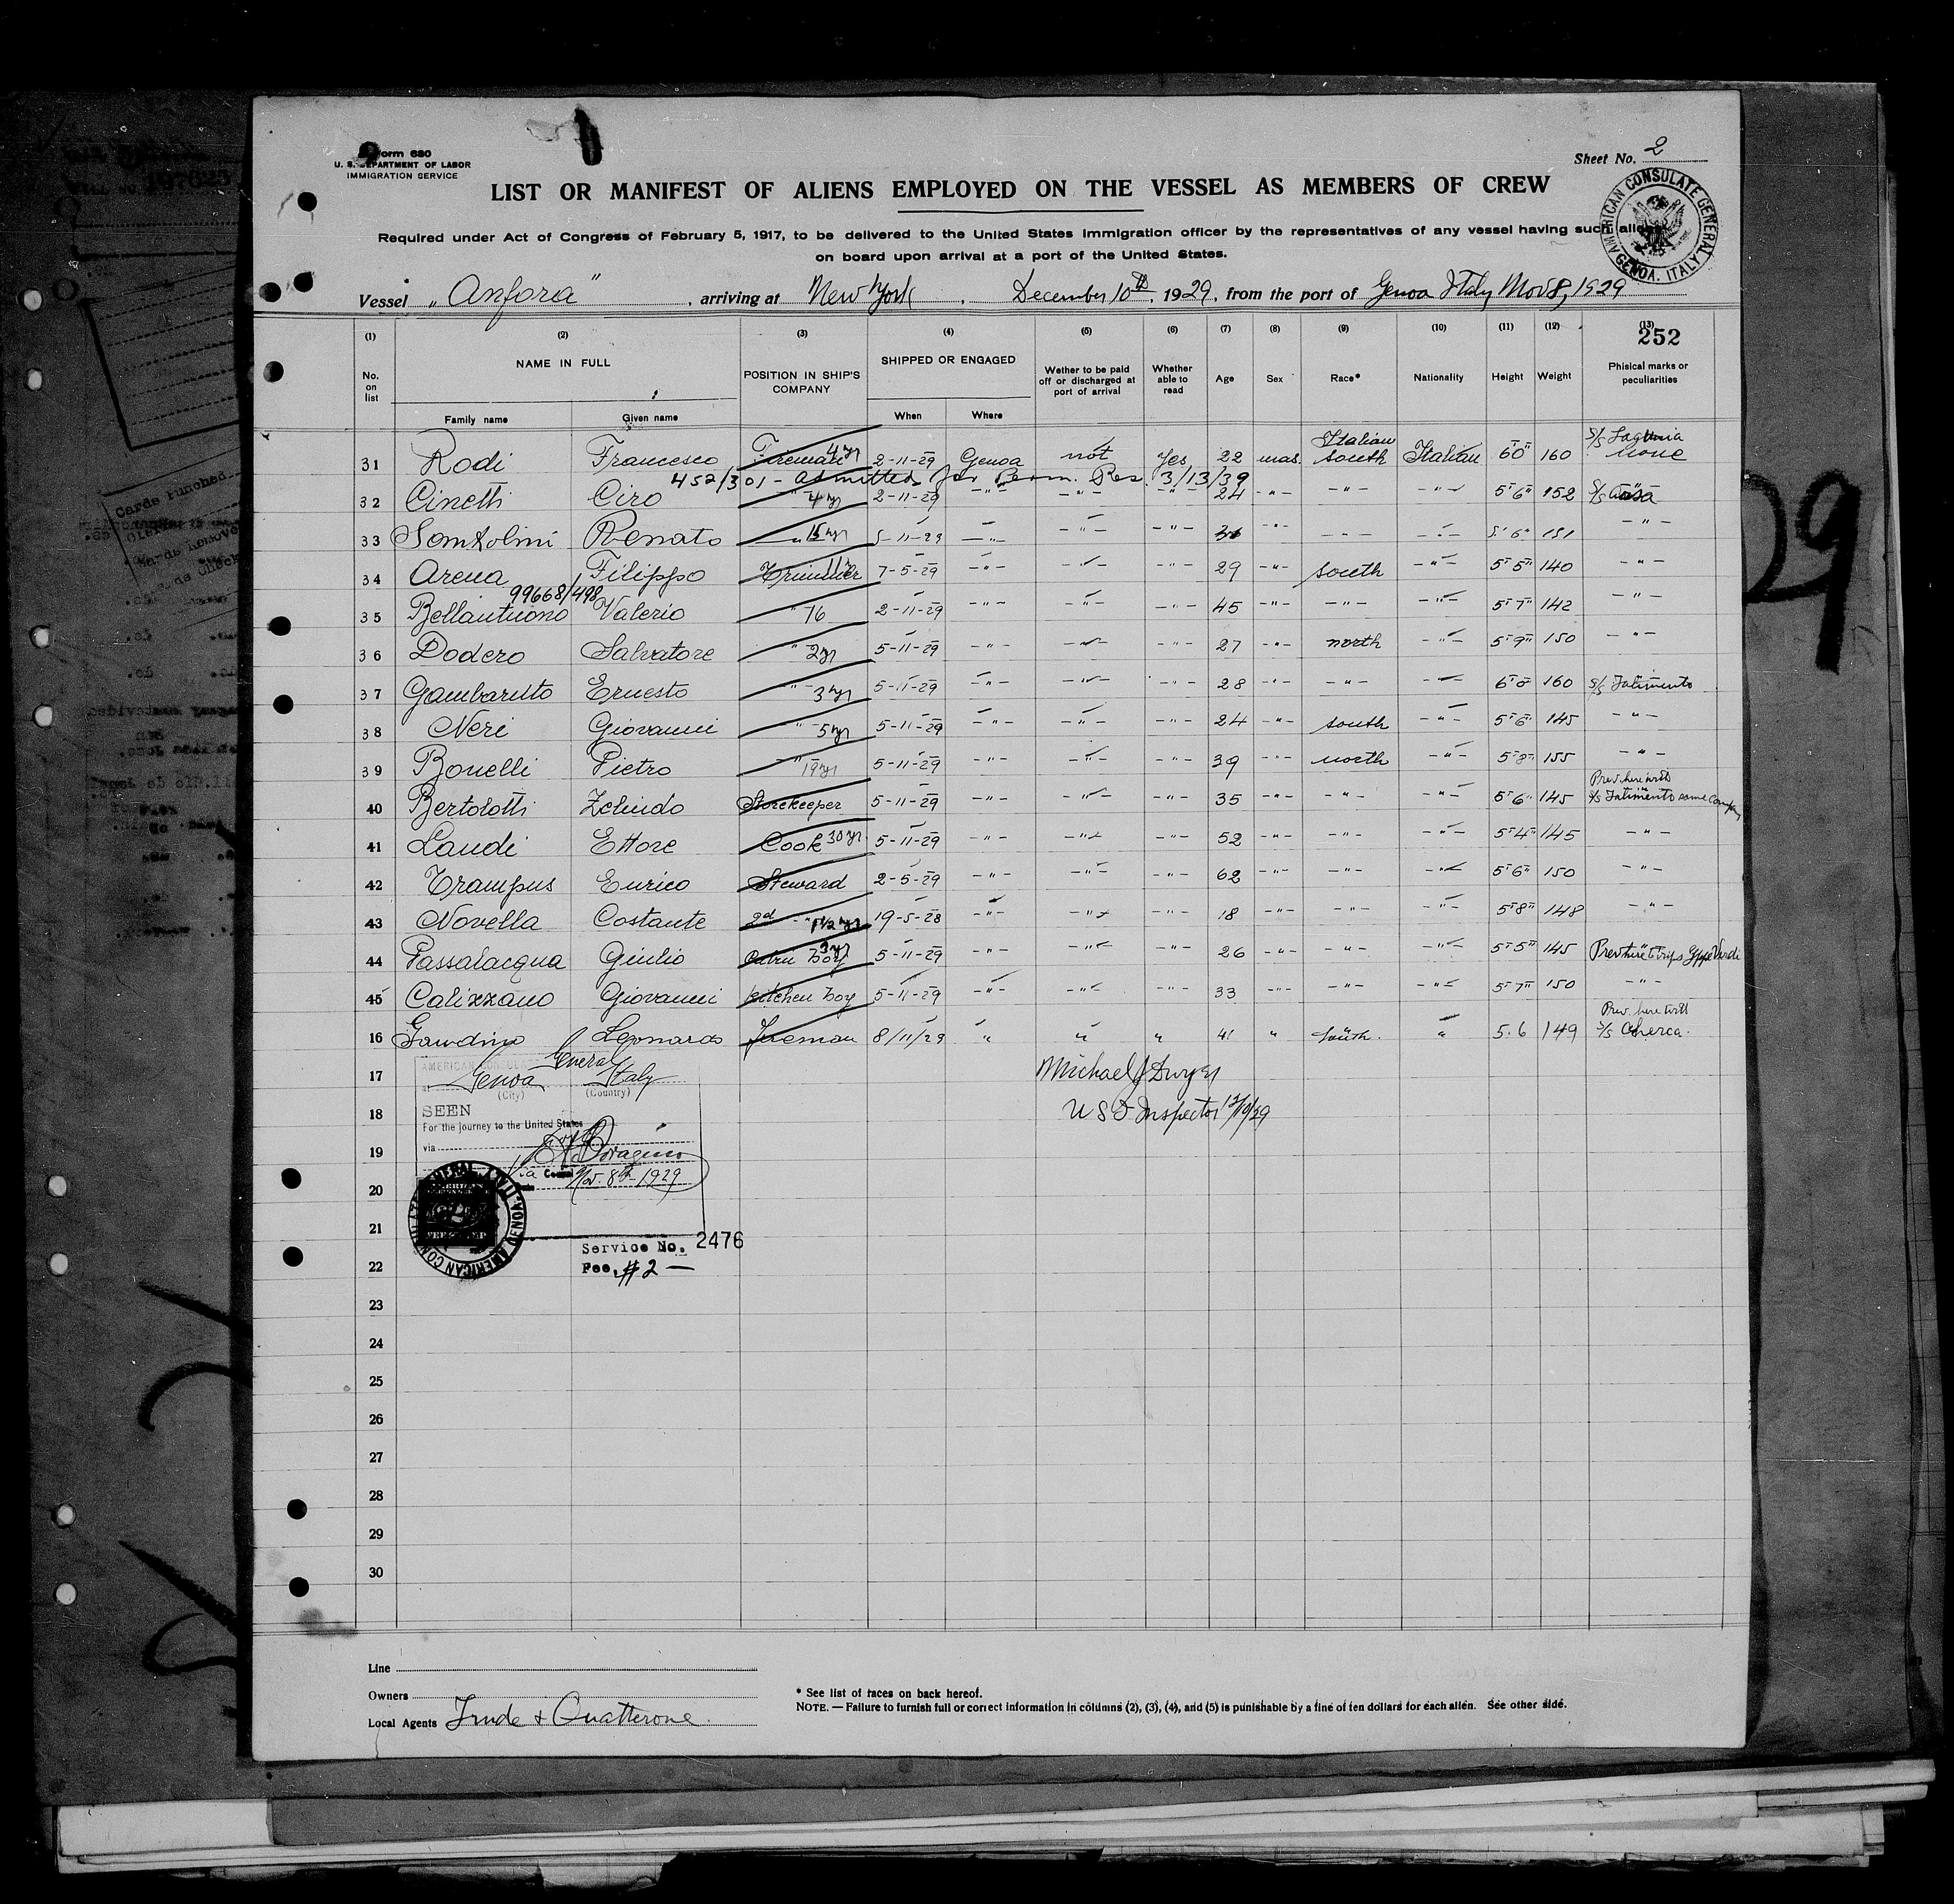 Form 680
U. S. DEPARTMENT OF LABOR
IMMIGRATION SERVICE
Sheet No. 2
LIST OR MANIFEST OF ALIENS EMPLOYED ON THE VESSEL AS MEMBERS OF CREW
Required under Act of Congress of February 5, 1917, to be delivered to the United States immigration officer by the representatives of any vessel having such aliens
on board upon arrival at a port of the United States.
AMERICAN CONSULATE GENERAL GENOA, ITALY
Vessel "Anfora", arriving at New York, December 10th, 1929, from the port of Genoa Italy Nov 8, 1929
(1) (2) (3) (4) (5) (6) (7) (8) (9) (10) (11) (12) (13)
252
No. on list NAME IN FULL POSITION IN SHIP'S COMPANY SHIPPED OR ENGAGED Wether to be paid off or discharged at port of arrival Whether able to read Age Sex Race* Nationality Height Weight Phisical marks or peculiarities
Family name Given name When Where
31 Rodi Francesco Fireman 4 yr 2-11-29 Genoa not yes 22 mas. Italian south Italian 6'0" 160 none
452/301 - admitted for Perm. Res. 3/13/39
32 Cinetti Ciro " 4 yr 2-11-29 -"- -"- -"- 24 -"- -"- -"- 5'6" 152 S/S
33 Renato " 15 yr 5-11-29 -"- -"- -"- -"- -"- -"- 5'6" 151 -"-
34 Arena Filippo 7-5-29 -"- -"- -"- 29 -"- south -"- 5'5" 140 -"-
99668/498
35 Bellantuono Valerio " 2-11-29 -"- -"- -"- 45 -"- -"- -"- 5'7" 142 -"-
36 Dodero Salvatore " 2 yr 5-11-29 -"- -"- -"- 27 -"- north -"- 5'9" 150 -"-
37 Ernesto " 3 yr 5-11-29 -"- -"- -"- 28 -"- -"- -"- 6'0" 160 S/S
38 Neri Giovanni " 5 yr 5-11-29 -"- -"- -"- 24 -"- south -"- 5'6" 145 -"-
39 Bonelli Pietro " 19 yr 5-11-29 -"- -"- -"- 39 -"- north -"- 5'8" 155 -"-
40 Bertolotti Storekeeper 5-11-29 -"- -"- -"- 35 -"- -"- -"- 5'6" 145 Prev. here with S/S same Company
41 Landi Ettore Cook 30 yr 5-11-29 -"- -"- -"- 52 -"- -"- -"- 5'4" 145 -"-
42 Trampus Enrico Steward 2-5-29 -"- -"- -"- 62 -"- -"- -"- 5'6" 150 -"-
43 Novella Costante 2d " 1 1/2 yrs 19-5-28 -"- -"- -"- 18 -"- -"- -"- 5'8" 148 -"-
44 Passalacqua Giulio Cabin boy 3 yr 5-11-29 -"- -"- -"- 26 -"- -"- -"- 5'5" 145 Prev here trips Verdi
45 Calizzano Giovanni kitchen boy 5-11-29 -"- -"- -"- 33 -"- -"- -"- 5'7" 150 -"-
16 Gandino Leonardo Fireman 8/11/29 " " " 41 " South " 5.6 149 Prev. here with S/S
17 Michael J Dwyer
18 U S I Inspector 12/10/29
General
Genoa Italy
(City) (Country)
SEEN
For the journey to the United States
via
Nov. 8th 1929
19
20
21
Service No. 2476
22
Fee, $2 —
23
24
25
26
27
28
29
30
Line
Owners
Local Agents Trude & Quatterone
* See list of races on back hereof.
NOTE. — Failure to furnish full or correct information in columns (2), (3), (4), and (5) is punishable by a fine of ten dollars for each alien. See other side.